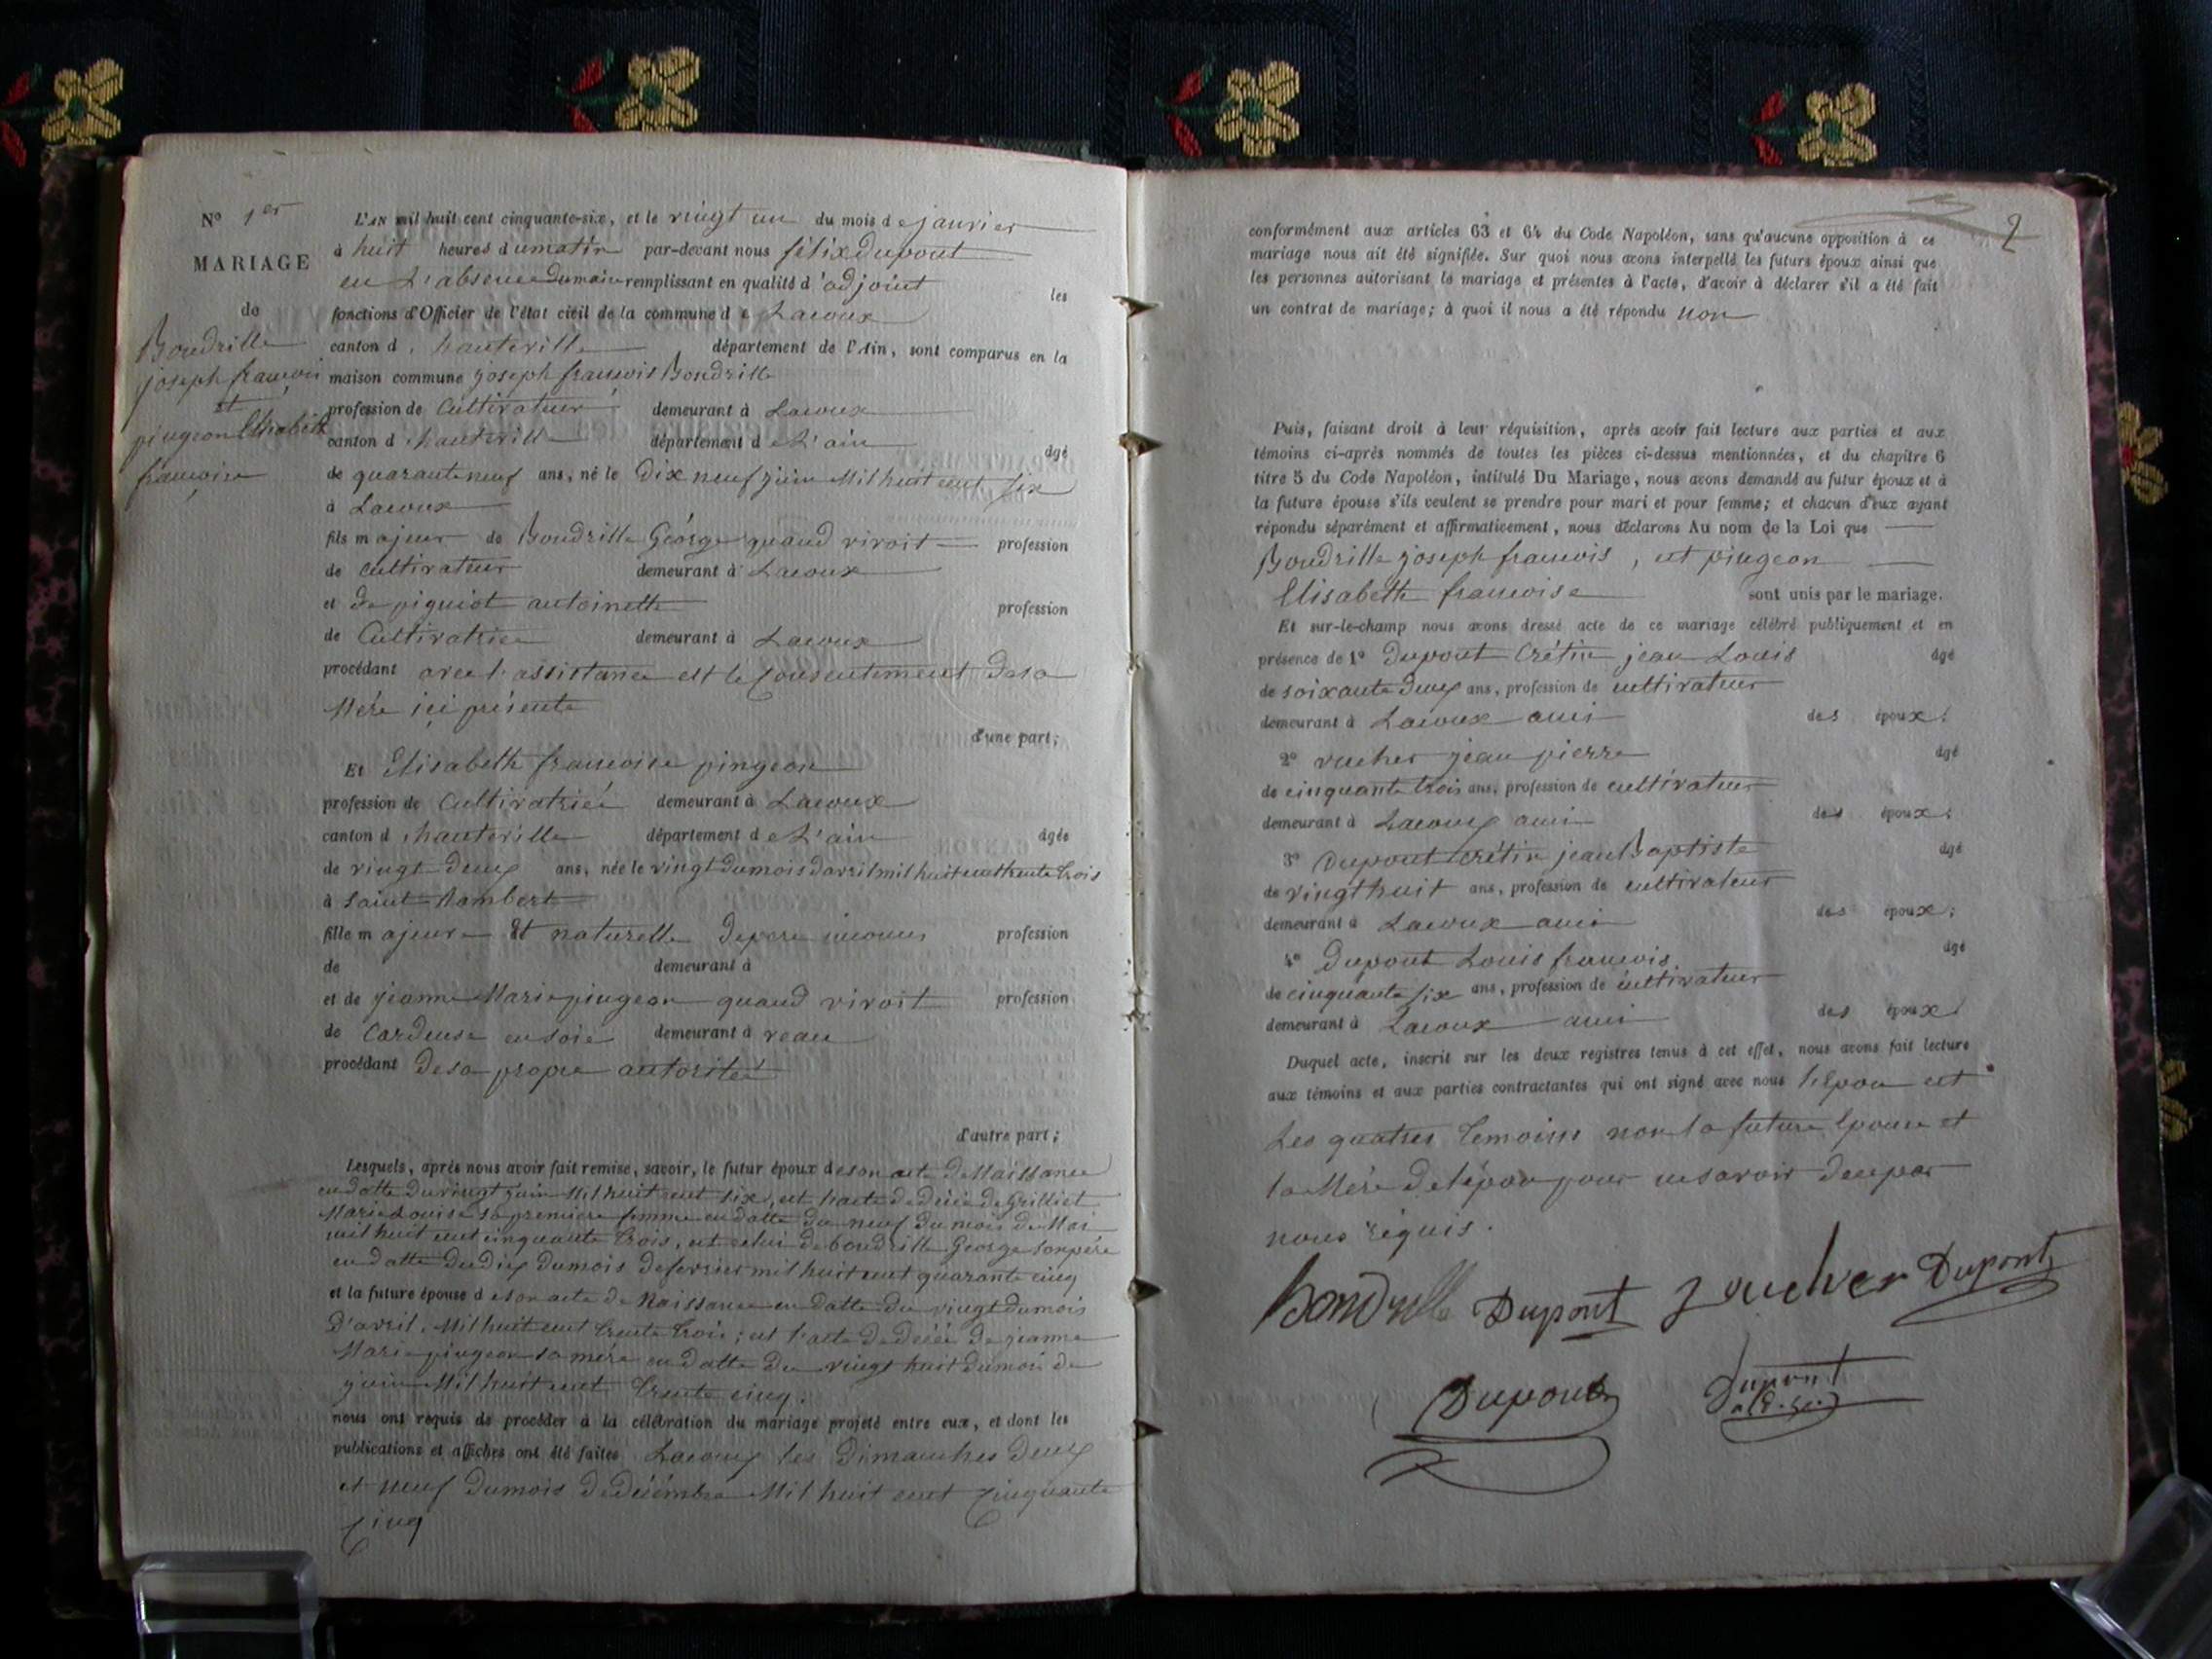 N° 1er
MARIAGE
de
Bondrille
joseph francois
et
pingeon Elisabeth
francoise
L'AN mil huit cent cinquante-six, et le vingt un du mois de janvier
à huit heures du matin par-devant nous félix dupont
en L'absence du maire remplissant en qualité d'adjoint les
fonctions d'Officier de l'état civil de la commune de Lacoux
canton d'hauteville département de l'Ain, sont comparus en la
maison commune joseph francois Bondrille
profession de Cultivateur demeurant à Lacoux
canton d'hauteville département de L'ain âgé
de quarante neuf ans, né le Dix neuf juin Mil huit cent six
à Lacoux
fils majeur de Bondrille George quand vivoit profession
de cultivateur demeurant à Lacoux
et de piquiot antoinette profession
de Cultivatrice demeurant à Lacoux
procédant avec l'assistance ett le Consentement de sa
Mère ici présente
d'une part;
Et Elisabeth francoise pingeon
profession de Cultivatrice demeurant à Lacoux
canton d'hauteville département de L'ain âgée
de vingt deux ans, née le vingt du mois d'avril mil huit cent trente trois
à Saint Rambert
fille majeure Et naturelle de pere inconu profession
de demeurant à
et de jeanne Marie pingeon quand vivoit profession
de Cardeuse en soie demeurant à
procédant de sa propre autorité
d'autre part;
Lesquels, après nous avoir fait remise, savoir, le futur époux de son acte de Naissance
en datte du vingt juin Mil huit cent six, et l'acte de décée de Grilliet
Marie Louise sa premiere femme en datte du neuf du mois de Mai
mil huit cent cinquante trois, et celui de bondrille George son père
en datte du dix du mois de fevrier mil huit cent quarante cinq
et la future épouse de son acte de Naissance en datte du vingt du mois
d'avril, Mil huit cent trente trois; et l'acte de décée de jeanne
Marie pingeon sa mère en datte du vingt huit du mois de
juin Mil huit cent trente cinq.
nous ont requis de procéder à la célébration du mariage projeté entre eux, et dont les
publications et affiches ont été faites Lacoux les dimanches deux
et neuf du mois de décembre Mil huit cent Cinquante
Cinq
2
conformément aux articles 63 et 64 du Code Napoléon, sans qu'aucune opposition à ce
mariage nous ait été signifiée. Sur quoi nous avons interpellé les futurs époux ainsi que
les personnes autorisant le mariage et présentes à l'acte, d'avoir à déclarer s'il a été fait
un contrat de mariage; à quoi il nous a été répondu non
Puis, faisant droit à leur réquisition, après avoir fait lecture aux parties et aux
témoins ci-après nommés de toutes les pièces ci-dessus mentionnées, et du chapitre 6
titre 5 du Code Napoléon, intitulé Du Mariage, nous avons demandé au futur époux et à
la future épouse s'ils veulent se prendre pour mari et pour femme; et chacun d'eux ayant
répondu séparément et affirmativement, nous déclarons Au nom de la Loi que
Bondrille joseph francois, et pingeon
Elisabeth francoise sont unis par le mariage.
Et sur-le-champ nous avons dressé acte de ce mariage célébré publiquement et en
présence de 1° Dupont Crétin jean Louis âgé
de soixante deux ans, profession de cultivateur
demeurant à Lacoux ami des époux;
2° vucher jean pierre âgé
de cinquante trois ans, profession de cultivateur
demeurant à Lacoux ami des époux;
3° Dupont Crétin jean Baptiste âgé
de vingt huit ans, profession de cultivateur
demeurant à Lacoux ami des époux;
4° Dupont Louis francois âgé
de cinquante six ans, profession de cultivateur
demeurant à Lacoux ami des époux
Duquel acte, inscrit sur les deux registres tenus à cet effet, nous avons fait lecture
aux témoins et aux parties contractantes qui ont signé avec nous l'Epou et
Les quatres temoins non la future Epouse et
la Mère de l'épou pour ne savoir de ce par
nous réquis.
bondrille Dupont Dupont
Dupont Dupont